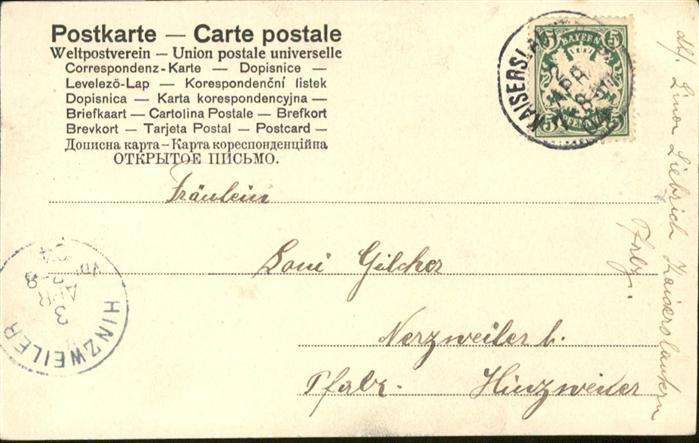 Postkarte — Carte postale
Weltpostverein — Union postale universelle
Correspondenz-Karte — Dopisnice —
Levelező-Lap — Korespondenční lístek
Dopisnica — Karta korespondencyjna —
Briefkaart — Cartolina Postale — Brefkort
Brevkort — Tarjeta Postal — Postcard —
Дописна карта — Карта кореспонденційна
ОТКРЫТОЕ ПИСЬМО.
KAISERSL
BAYERN
5
5
Fräulein
Loni Gilcher
Nerzweiler b.
Pfalz. Hinzweiler
HINZWEILER
3
APR
Liebrich Kaiserslautern
Pfalz.